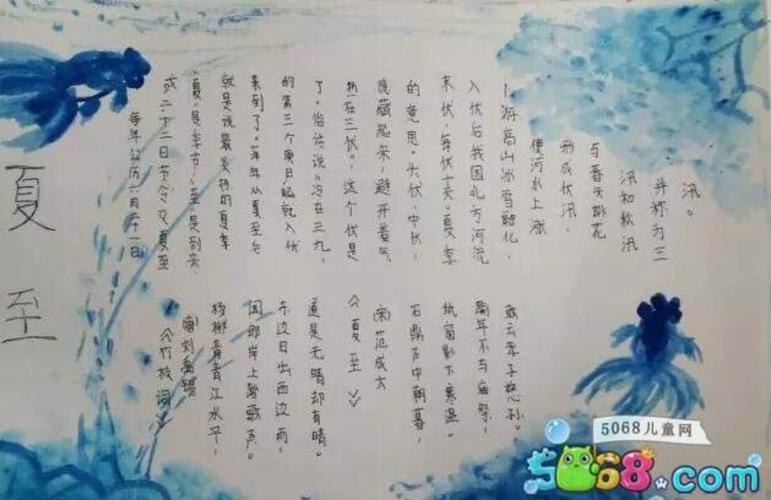 夏至
每年公历六月二十一日
或二十二日节令交夏至
“夏”是季节,“至”是到来
就是说最炎热的夏季
来到了。每年从夏至后
的第三个庚日起就入伏
了。俗话说“冷在三九,
热在三伏”,这个伏是
隐藏起来,避开暑气
的意思。头伏、中伏、
末伏,每伏十天。夏季
入伏后我国北方河流
上游高山冰雪融化,
使河水上涨
形成伏汛,
与春天花
汛和秋汛
并称为三
汛。
《竹枝词》
唐 刘禹锡
杨柳青青江水平,
闻郎岸上踏歌声。
东边日出西边雨,
道是无晴却有晴。
《夏至》
宋 范成大
石鼎声中朝暮,
纸窗影下寒温。
踰年不与庙祭,
敢云孝子慈孙。
5068儿童网
5068.com